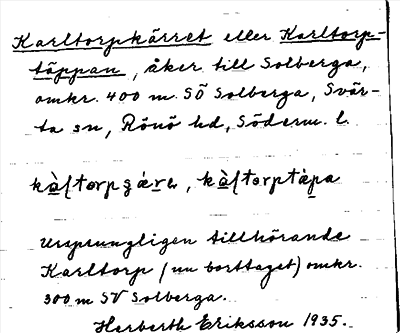 Karltorpkärret eller Karltorp-
täppan, åker till Solberga,
omkr. 400 m SÖ Solberga, Svär-
ta sn, Rönö hd, Söderm. l.
Ursprungligen tillhörande
Karltorp (nu borttaget) omkr.
300 m SV Solberga.
Herberth Eriksson 1935.